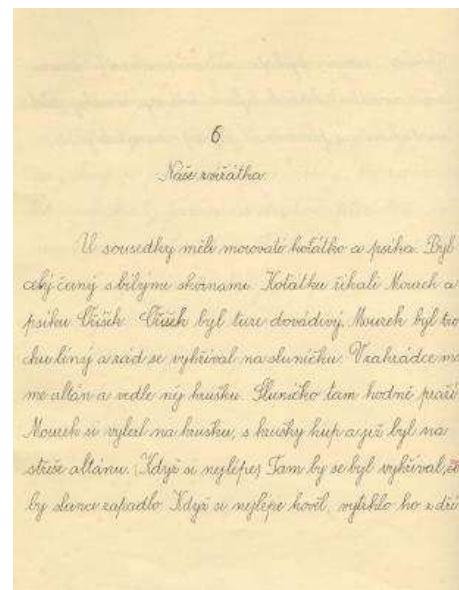 6
Naše zvířátka
U sousedky měli morovaté koťátko a psíka. Byl
celý černý s bílými skvrnami. Koťátku říkali Mourek a
psíku Oříšek. Oříšek byl ture dovádivý. Mourek byl tro
chu líný a rád se vyhříval na sluníčku. V zahrádce má
me altán a vedle něj hrušku. Sluníčko tam hodně praží
Mourek si vylezl na hrušku, s hrušky hup a již byl na
střeše altánu. (Když si nejlépe) Tam by se byl vyhříval, až
by slunce zapadlo. Když si nejlépe hověl, vytrhlo ho z dří